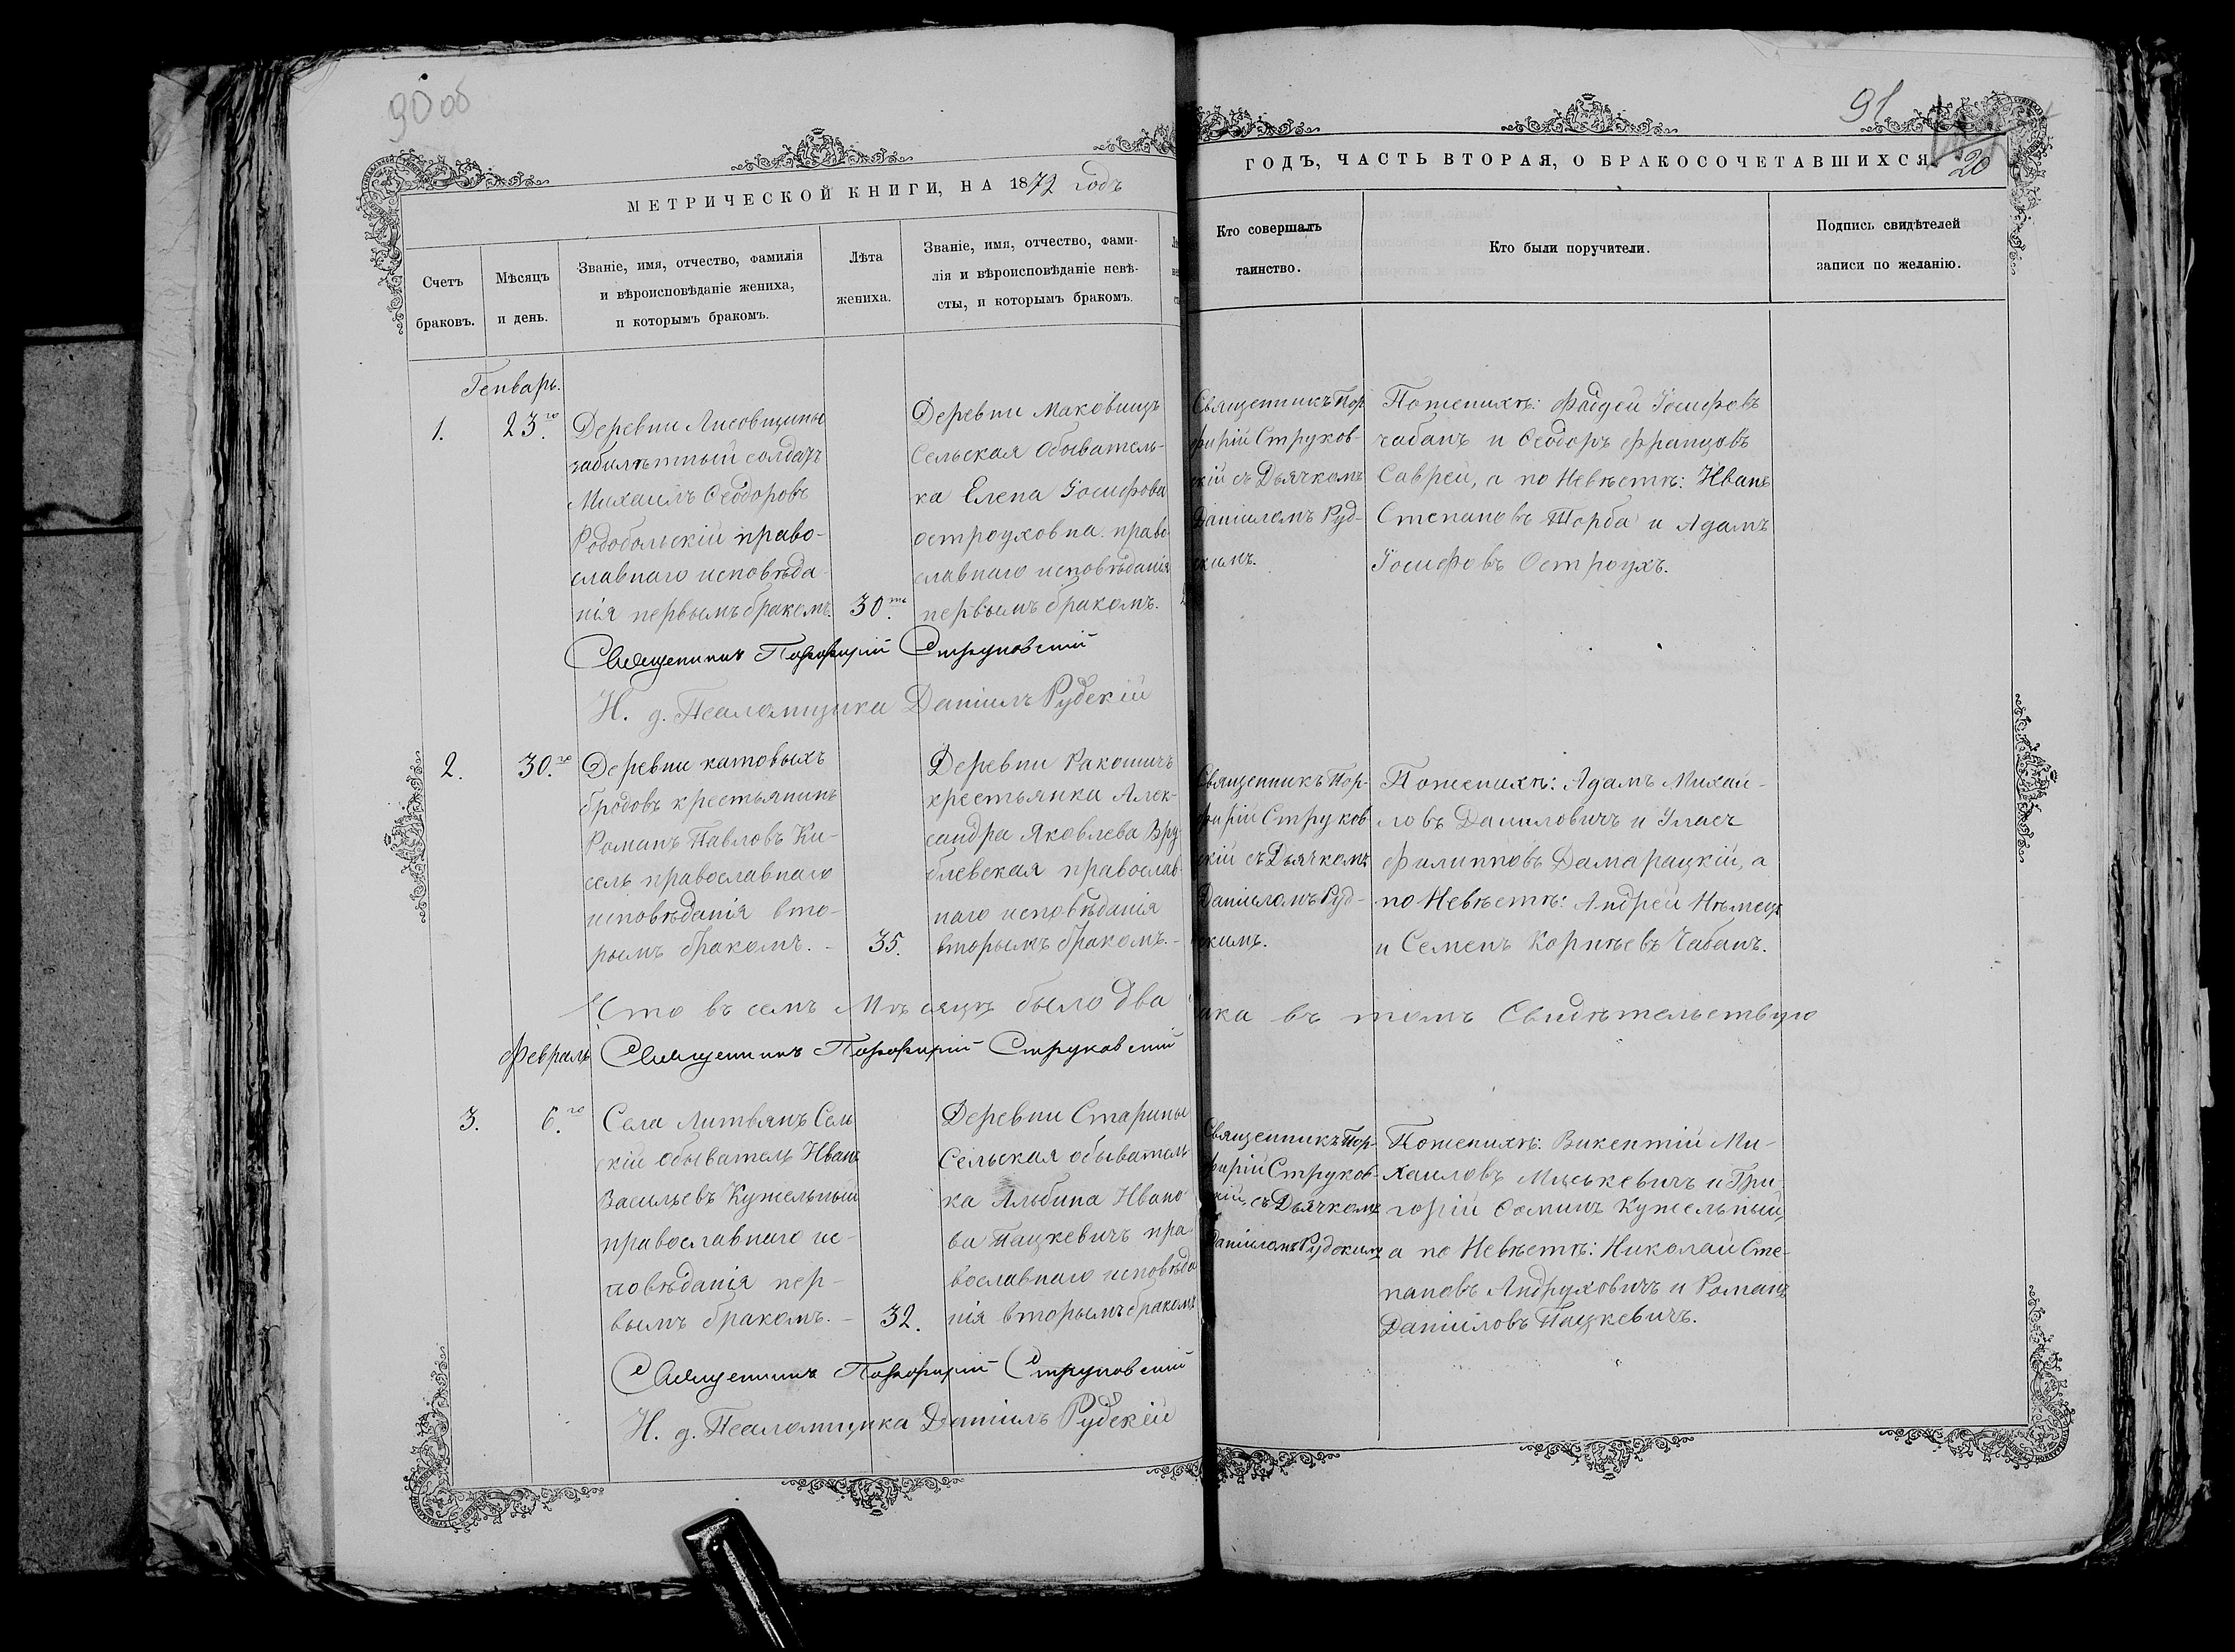 90 об
МЕТРИЧЕСКОЙ КНИГИ, НА 1872 годъ
Счетъ
браковъ.
Мѣсяцъ
и день.
Званіе, имя, отчество, фамилія
и вѣроисповѣданіе жениха,
и которымъ бракомъ.
Лѣта
жениха.
Званіе, имя, отчество, фами-
лія и вѣроисповѣданіе невѣ-
сты, и которымъ бракомъ.
Генварь.
1.
23.го
Деревни Лисовщины
забилѣтный солдатъ
Михаилъ Ѳеодоровъ
Родобольскій право-
славнаго исповѣда-
нія первымъ бракомъ.
30.ть
Деревни Маковищъ
Сельская Обыватель-
ка Елена Іосифова
остроуховна право-
славнаго исповѣданія
первымъ бракомъ.
Священникъ Порфирій Струковскій
И. д. Псаломщика Даніилъ Рудскій
2.
30.го
Деревни катовыхъ
бродовъ крестьянинъ
Романъ Павловъ Ки-
сель православнаго
исповѣданія вто-
рымъ бракомъ. -
35.
Деревни Ракошичъ
крестьянка Алек-
сандра Яковлева Вру-
блевская православ-
наго исповѣданія
вторымъ бракомъ. -
Что въ семъ Мѣсяцѣ было два
Февраль
Священникъ Порфирій Струковскій
3.
6.го
Села Литвянъ Сель
скій обыватель Иванъ
Васильевъ Кужельный
православнаго ис-
повѣданія пер-
вымъ бракомъ. -
32.
Деревни Старины
Сельская обыватель
ка Альбина Ивано-
ва Пацкевичъ пра
вославнаго исповѣда
нія вторымъ бракомъ
Священникъ Порфирій Струковскій
И. д. Псаломщика Даніилъ Рудскій
91
20
ГОДЪ, ЧАСТЬ ВТОРАЯ, О БРАКОСОЧЕТАВШИХСЯ
Кто совершалъ
таинство.
Кто были поручители.
Подпись свидѣтелей
записи по желанію.
Священникъ Пор
фирій Струков-
скій съ Дьячкомъ
Даніиломъ Руд-
скимъ.
Поженихѣ: Фадей Іосифовъ
чабанъ и Ѳеодоръ Францовъ
Саврей, а по Невѣстѣ: Иванъ
Степановъ Торба и Адамъ
Іосифовъ Остроухъ.
Священникъ Пор-
фирій Струков
скій съ Дьячкомъ
Даніиломъ Руд-
скимъ.
Поженихѣ: Адамъ Михай-
ловъ Даниловичъ и Уласъ
Филипповъ Дамарацкій, а
по Невѣстѣ: Андрей Нѣмецъ
и Семенъ Корнѣевъ Чабанъ.
ака въ томъ Свидѣтельствую
Священникъ Пор-
фирій Струков-
скій, съ Дьячкомъ
Даніиломъ Рудскимъ
Поженихѣ: Викентій Ми-
хаиловъ Миськевичъ и Гри
горій Ѳоминъ Кужельный,
а по Невѣстѣ: Николай Сте-
пановъ Андруховичъ и Романъ
Даніиловъ Пацкевичъ.